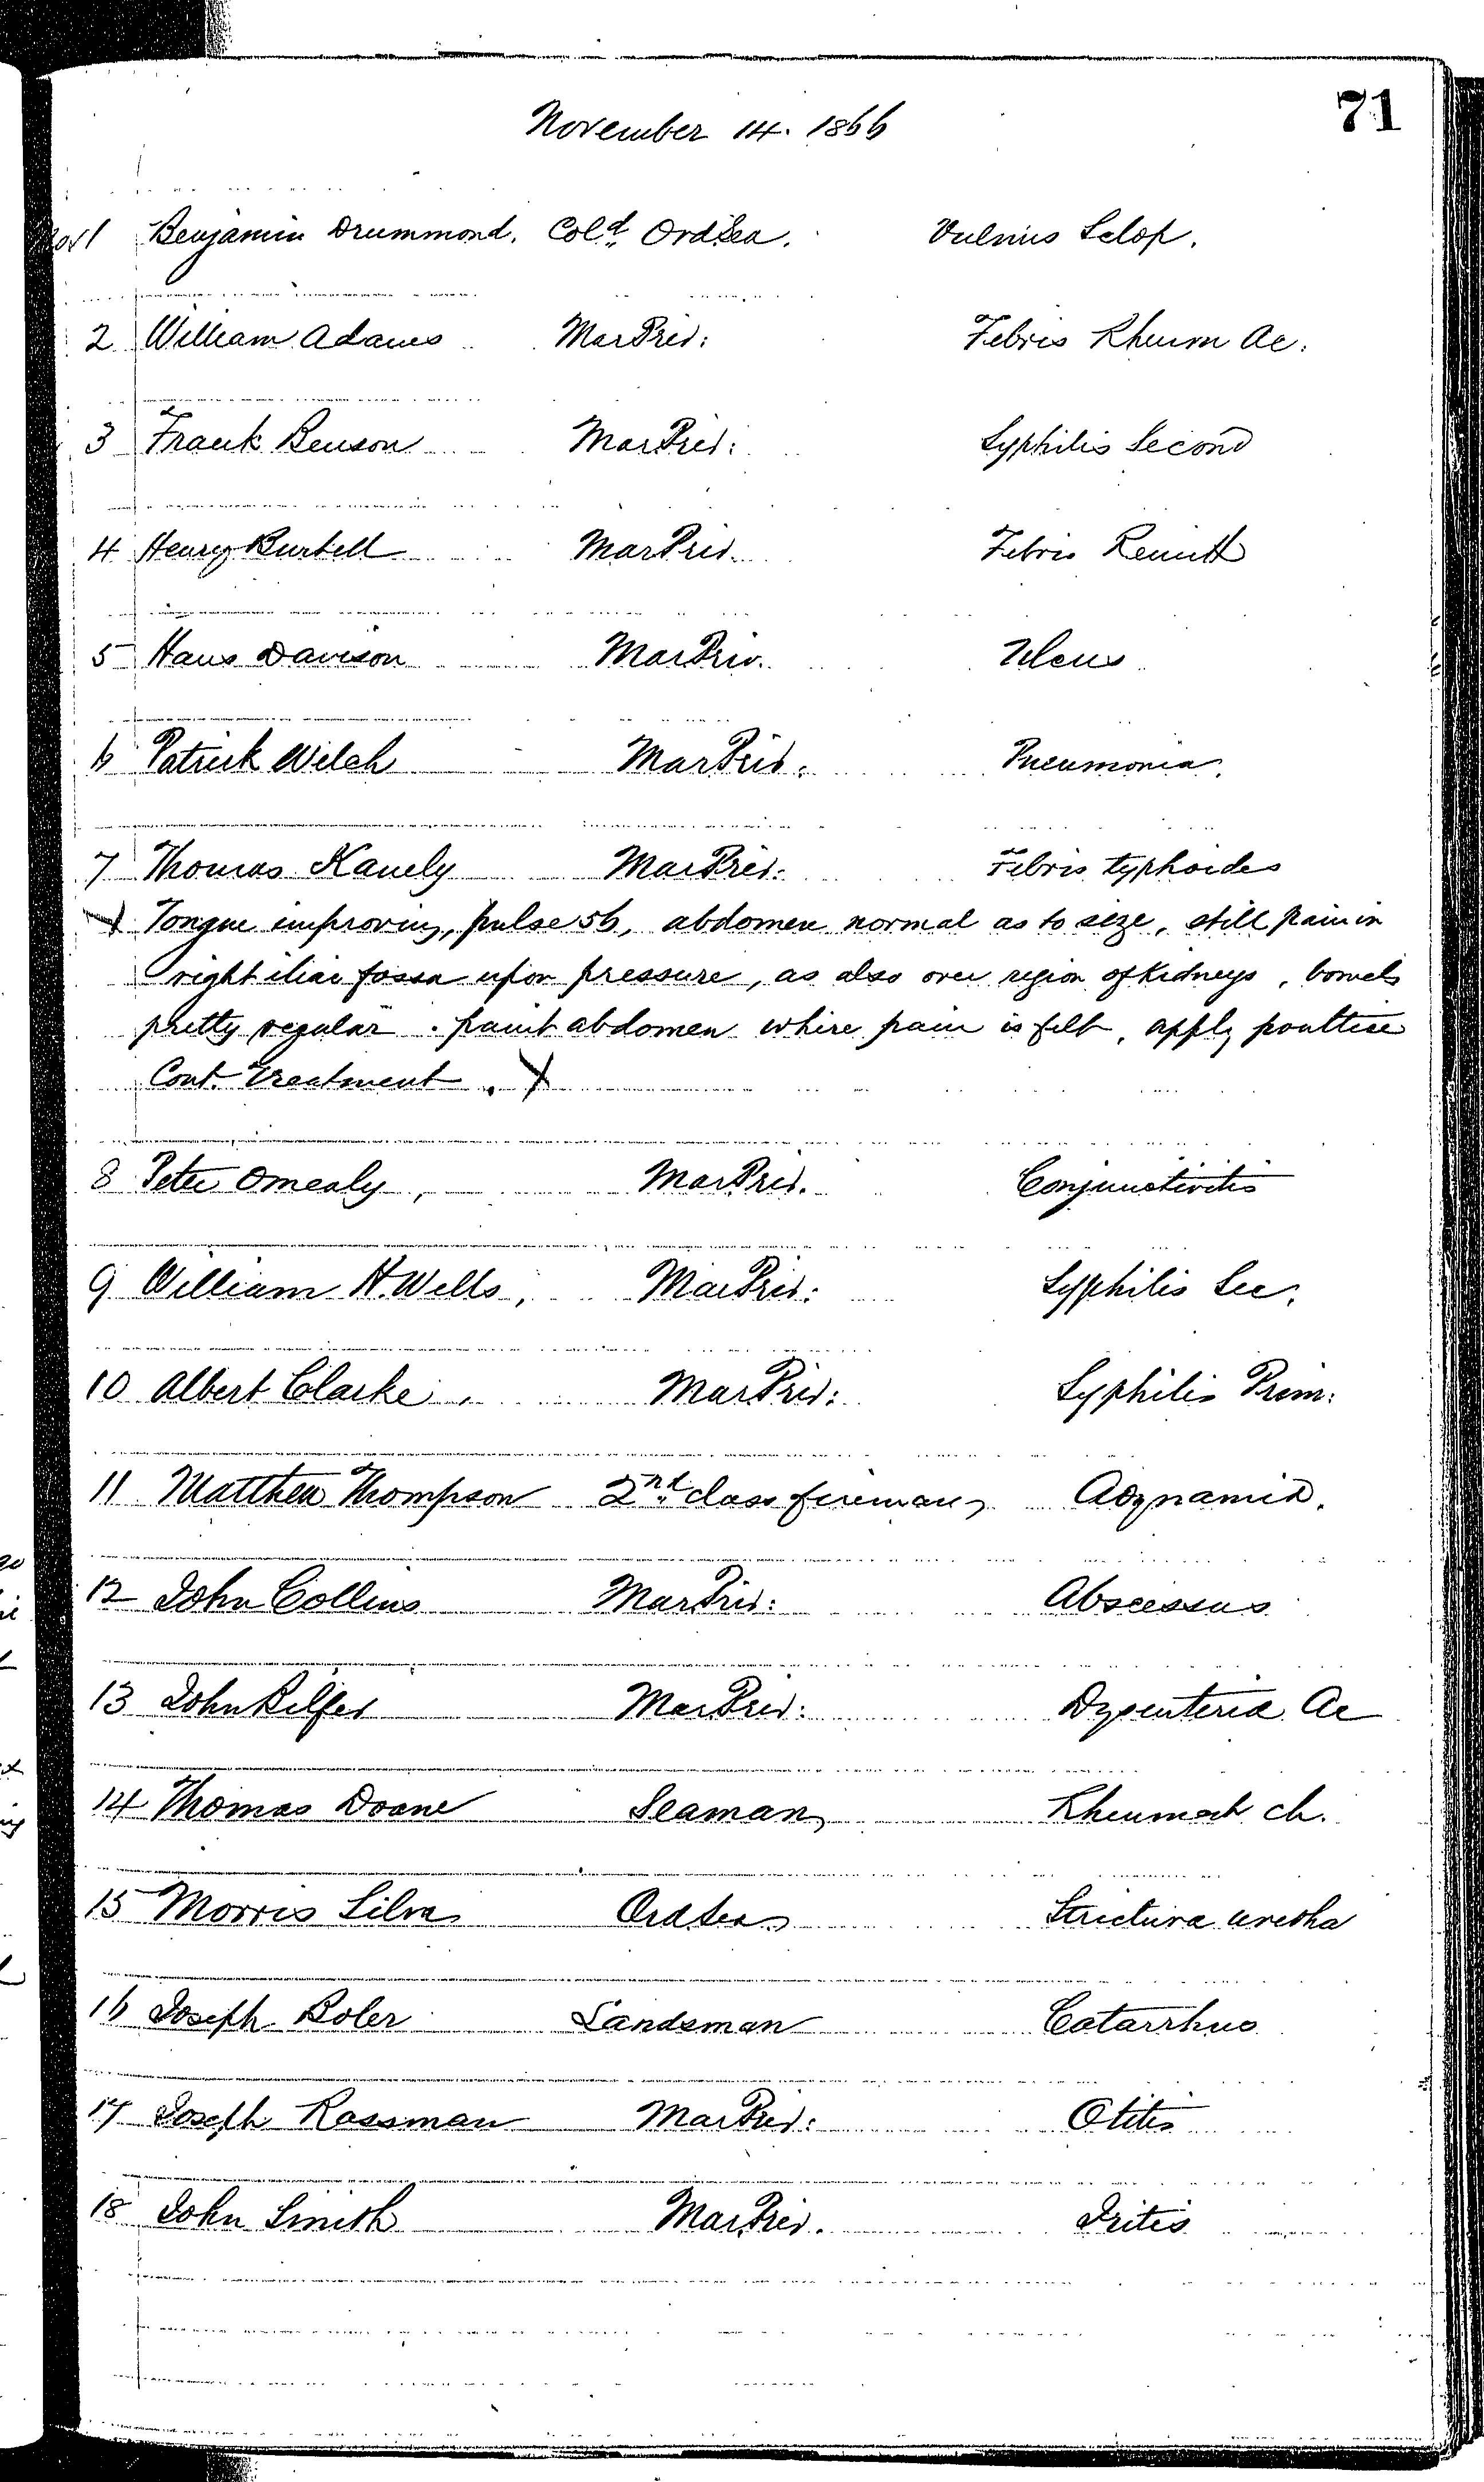 71
November 14. 1866
No 1 Benjamin Drummond. Col.d OrdSea. Vulnus Sclop.
2 William Adams MarPriv: Febris Rheum Ac:
3 Frank Benson MarPriv: Syphilis Second
4 Henry Burtell MarPriv. Febris Remitt
5 Hans Davison MarPriv. Ulcus
6 Patrick Welch MarPriv. Pneumonia.
7 Thomas Kanely MarPriv: Febris typhoides
Tongue improving, pulse 56, abdomen normal as to size, still pain in
right iliac fossa upon pressure, as also over region of Kidneys, bowels
pretty regular. paint abdomen where pain is felt, apply poultice
Cont. Treatment.
8 Peter Omealy, MarPriv. Conjunctivitis
9 William H. Wells, MarPriv: Syphilis Sec.
10 Albert Clarke, MarPriv: Syphilis Prim:
11 Matthew Thompson 2nd class fireman, Adynamia.
12 John Collins MarPriv: Abscessus
13 John MarPriv: Dysenteria Ac
14 Thomas Doane Seaman, Rheumat ch.
15 Morris Silva OrdSea. Strictura uretha
16 Joseph Boler Landsman Catarrhus
17 Joseph Rossman MarPriv: Otitis
18 John Smith MarPriv. Iritis